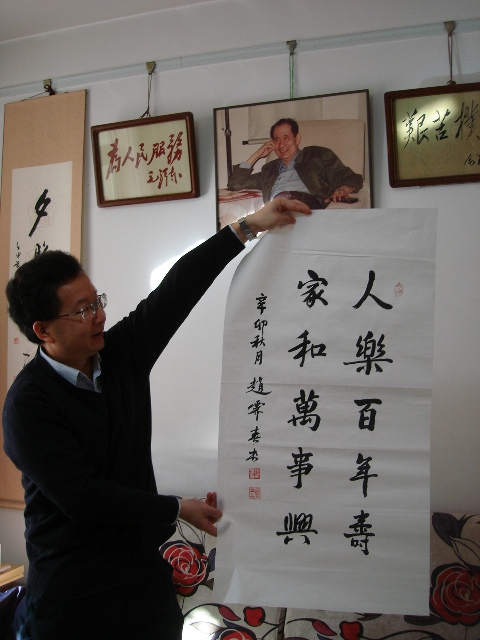 人樂百年壽
家和萬事興
辛卯秋月 趙霖春书
為人民服務
毛澤東
艱苦樸
夕